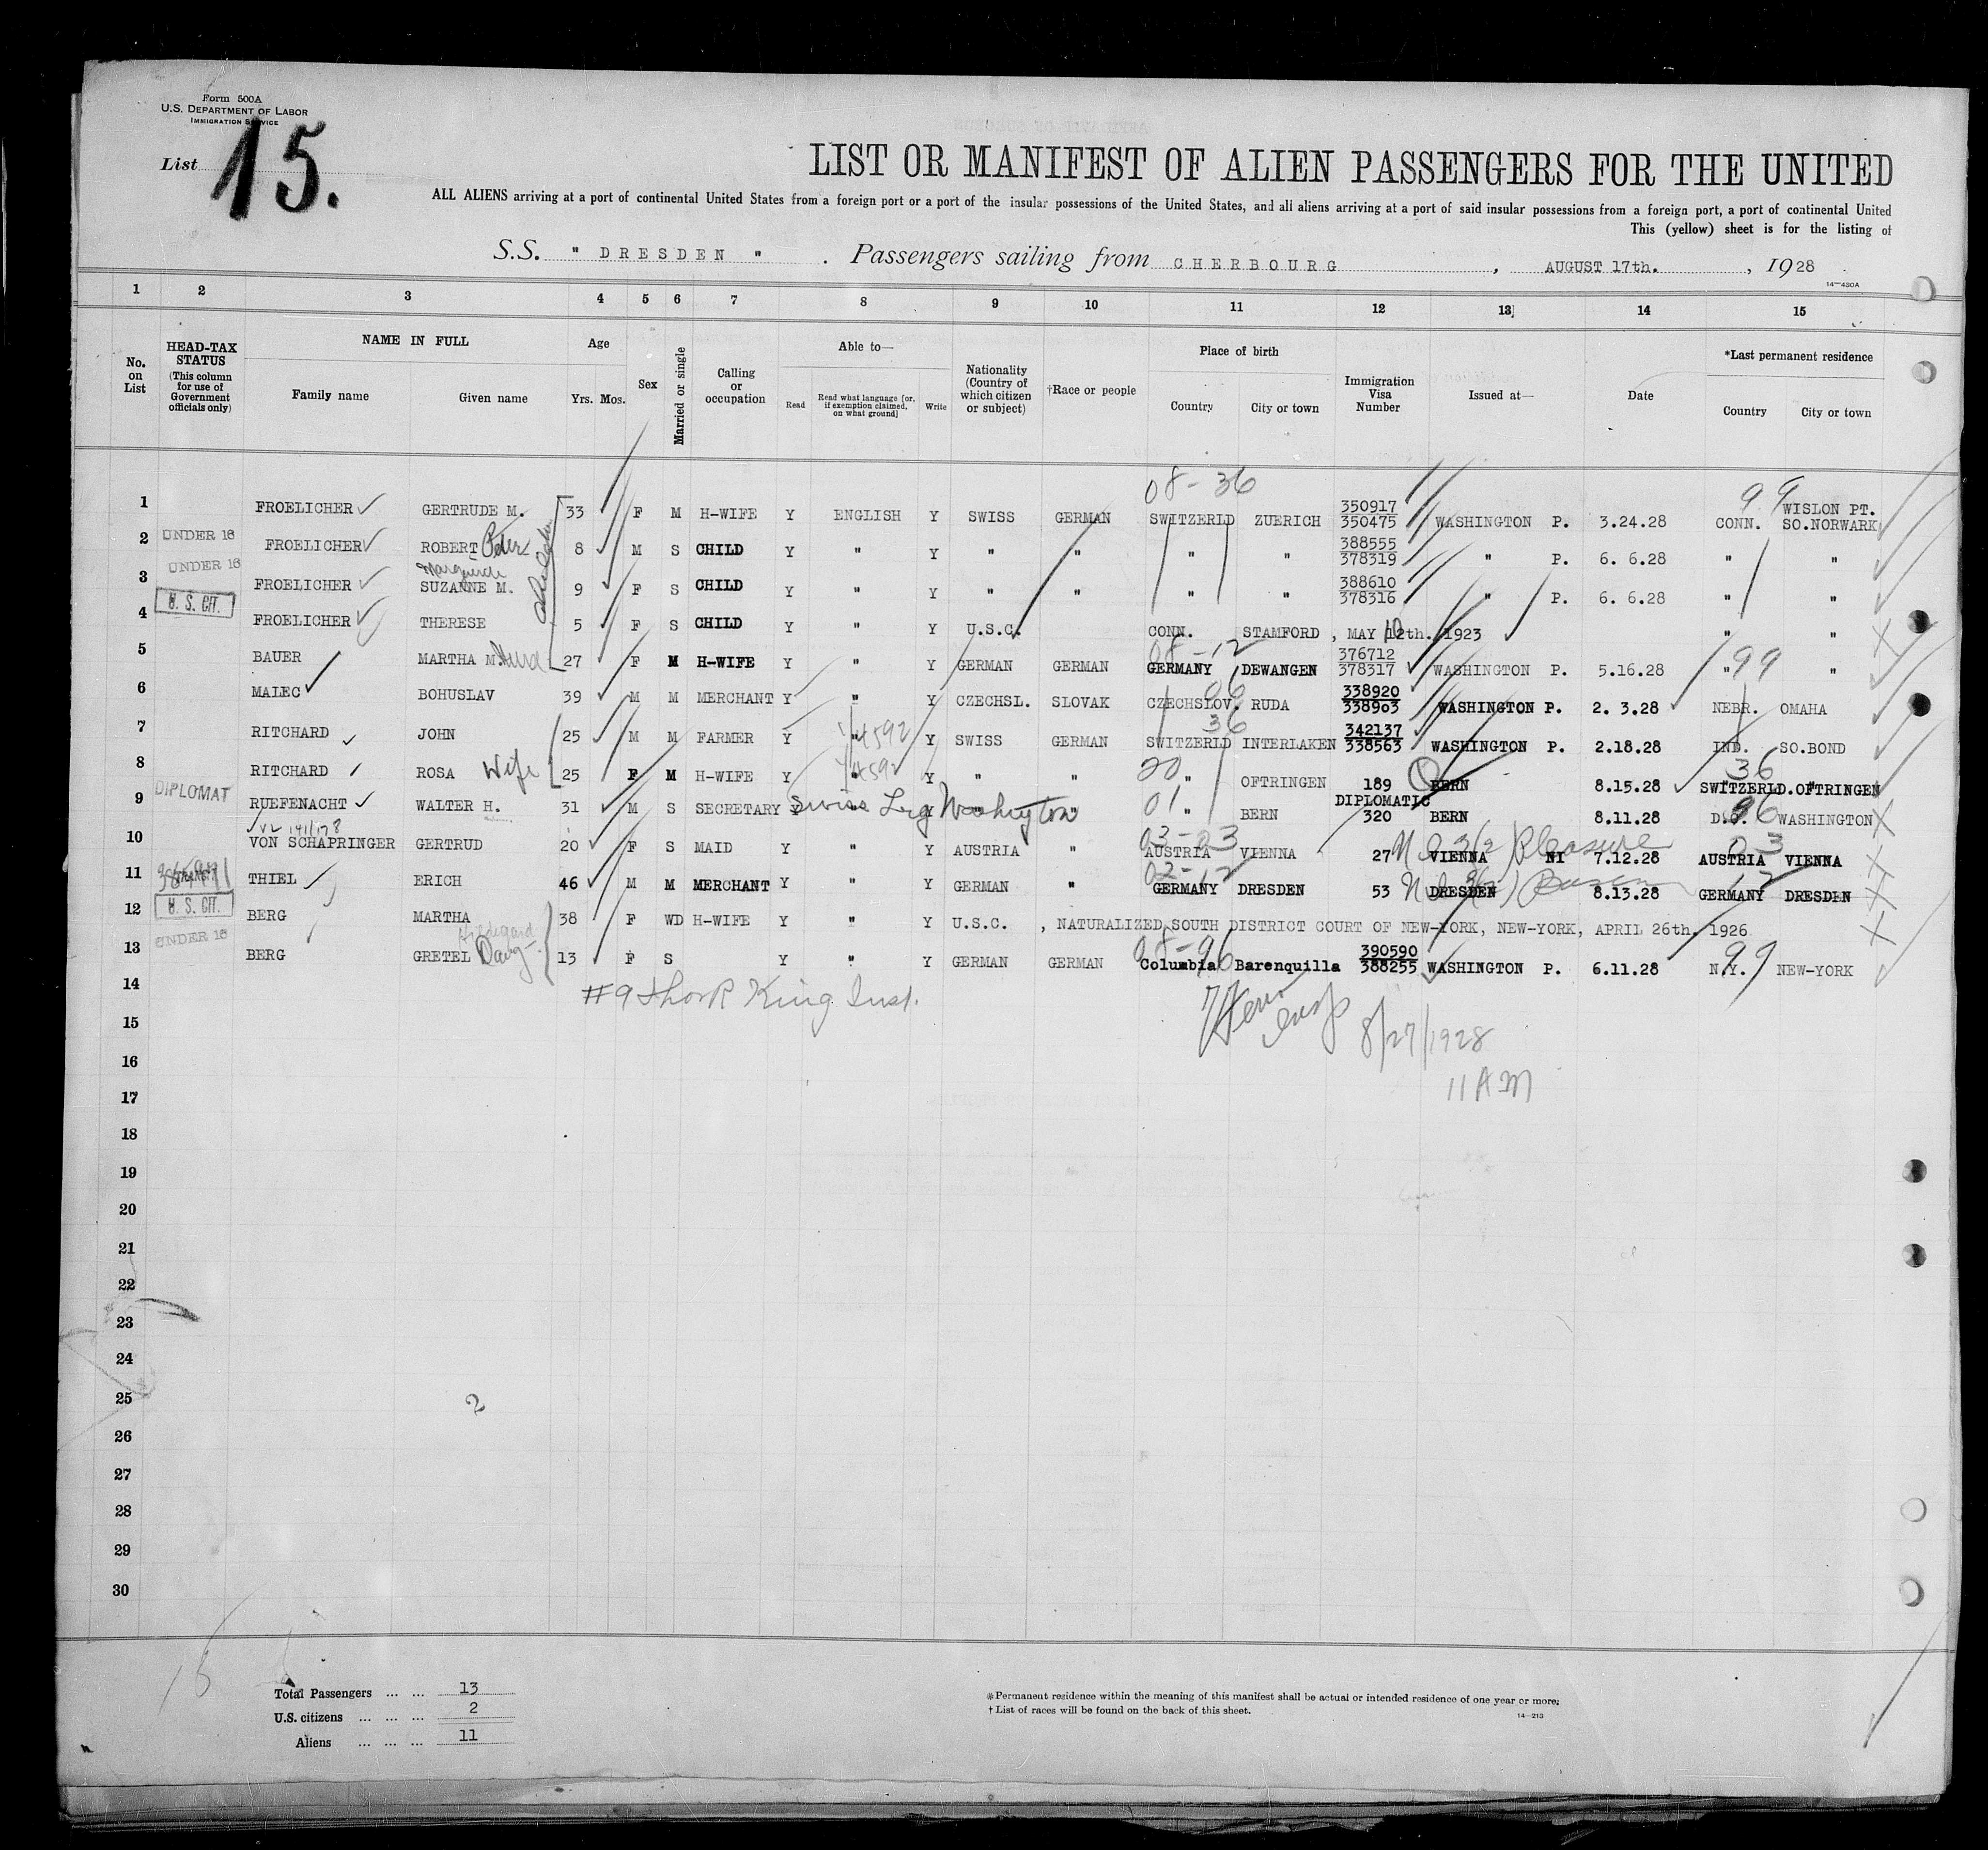 Form 500A
U.S. DEPARTMENT OF LABOR
IMMIGRATION SERVICE
List 15.
LIST OR MANIFEST OF ALIEN PASSENGERS FOR THE UNITED
ALL ALIENS arriving at a port of continental United States from a foreign port or a port of the insular possessions of the United States, and all aliens arriving at a port of said insular possessions from a foreign port, a port of continental United
This (yellow) sheet is for the listing of
S.S. " DRESDEN " . Passengers sailing from CHERBOURG , AUGUST 17th. , 1928
14—430A
1 2 3 4 5 6 7 8 9 10 11 12 13 14 15
No. on List
HEAD-TAX STATUS (This column for use of Government officials only)
NAME IN FULL
Family name Given name
Age
Yrs. Mos.
Sex
Married or single
Calling or occupation
Able to—
Read
Read what language [or, if exemption claimed, on what ground]
Write
Nationality (Country of which citizen or subject)
†Race or people
Place of birth
Country City or town
Immigration Visa Number
Issued at—
Date
*Last permanent residence
Country City or town
08-36 99
1 FROELICHER GERTRUDE M. 33 F M H-WIFE Y ENGLISH Y SWISS GERMAN SWITZERLD ZUERICH 350917 350475 WASHINGTON P. 3.24.28 CONN. WISLON PT. SO.NORWARK
2 UNDER 16 FROELICHER ROBERT Peter 8 M S CHILD Y " Y " " " " 388555 378319 " P. 6. 6.28 " "
3 UNDER 16 FROELICHER SUZANNE M. 9 F S CHILD Y " Y " " " " 388610 378316 " P. 6. 6.28 " "
4 U. S. CIT. FROELICHER THERESE 5 F S CHILD Y " Y U.S.C. CONN. STAMFORD , MAY 12th. 1923 " "
08-12
5 BAUER MARTHA M. 27 F M H-WIFE Y " Y GERMAN GERMAN GERMANY DEWANGEN 376712 378317 WASHINGTON P. 5.16.28 " 99 "
06
6 MALEC BOHUSLAV 39 M M MERCHANT Y " Y CZECHSL. SLOVAK CZECHSLOV. RUDA 338920 338903 WASHINGTON P. 2. 3.28 NEBR. OMAHA
36
7 RITCHARD JOHN 25 M M FARMER Y " Y SWISS GERMAN SWITZERLD INTERLAKEN 342137 338563 WASHINGTON P. 2.18.28 IND. SO.BOND
8 RITCHARD ROSA Wife 25 F M H-WIFE Y " Y " " 20 " OFTRINGEN 189 BERN 8.15.28 36 SWITZERLD. OFTRINGEN
9 DIPLOMAT RUEFENACHT WALTER H. 31 M S SECRETARY Y Swiss Leg Washington Y " " 01 " BERN DIPLOMATIC 320 BERN 8.11.28 D.C. 96 WASHINGTON
10 VON SCHAPRINGER GERTRUD 20 F S MAID Y " Y AUSTRIA " 03-23 AUSTRIA VIENNA 27 VIENNA NI Pleasure 7.12.28 03 AUSTRIA VIENNA
11 THIEL ERICH 46 M M MERCHANT Y " Y GERMAN " 02-12 GERMANY DRESDEN 53 DRESDEN 8.13.28 12 GERMANY DRESDEN
12 U. S. CIT. BERG MARTHA 38 F WD H-WIFE Y " Y U.S.C. , NATURALIZED SOUTH DISTRICT COURT OF NEW-YORK, NEW-YORK, APRIL 26th. 1926
13 UNDER 16 BERG GRETEL Hildegard Daug- 13 F S Y " Y GERMAN GERMAN 08-96 Columbia Barenquilla 390590 388255 WASHINGTON P. 6.11.28 N.Y. 99 NEW-YORK
14 King Insp.
15
8/27/1928
16
11 AM
17
18
19
20
21
22
23
24
25 2
26
27
28
29
30
15
Total Passengers ... ... 13
U.S. citizens ... ... ... 2
Aliens ... ... ... 11
*Permanent residence within the meaning of this manifest shall be actual or intended residence of one year or more.
† List of races will be found on the back of this sheet.
14—213